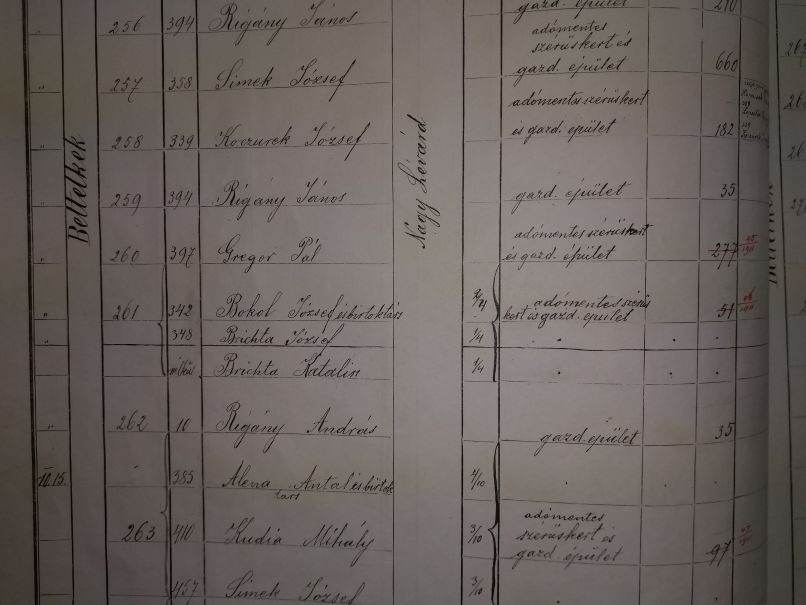 gazd. épület 210
" 256 394 Rigány János adómentes
szérűskert és
gazd. épület 660
" 257 358 Simek József adómentes szérűskert
és gazd. épület 182
" 258 339 Koczurek József
" 259 394 Rigány János gazd. épület 35
" 260 397 Gregor Pál adómentes szérűskert
és gazd. épület 277
" 261 342 Bokol József és birtoktárs 2/4 adómentes szérűs
kert és gazd. épület 51
348 Brichta József 1/4 "
Brichta Katalin 1/4 "
" 262 10 Rigány András gazd. épület 35
10.15. 385 Alena Antal és birtok
társ 4/10 "
263 410 Kudia Mihály 3/10 adómentes
szérűskert és
gazd. épület 97
457 Simek József 3/10 "
Beltelkek
Nagy Lévárd